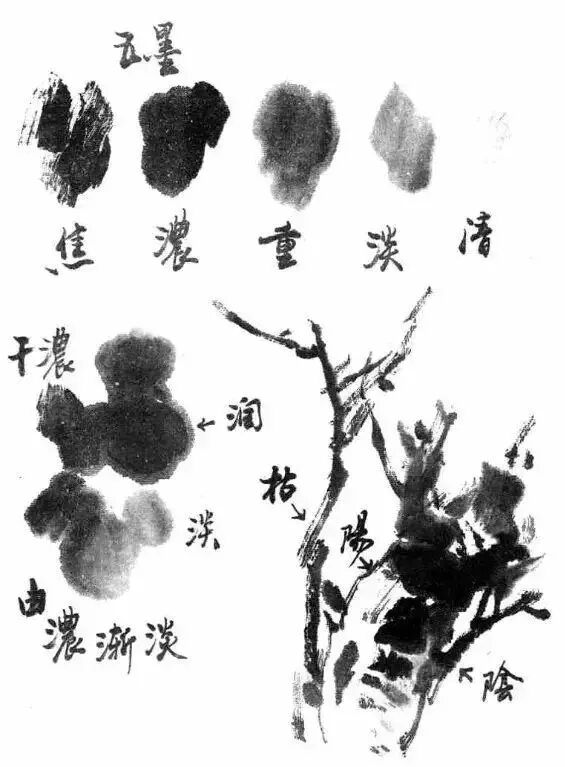 五墨
焦 濃 重 淡 清
干濃
润
枯
陽
淡
由濃漸淡
陰